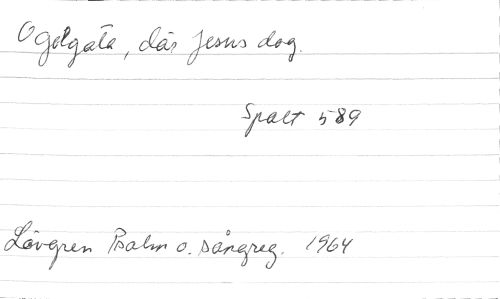 O Golgata, där Jesus dog.
Spalt 589
Lövgren Psalm o. sångreg. 1964